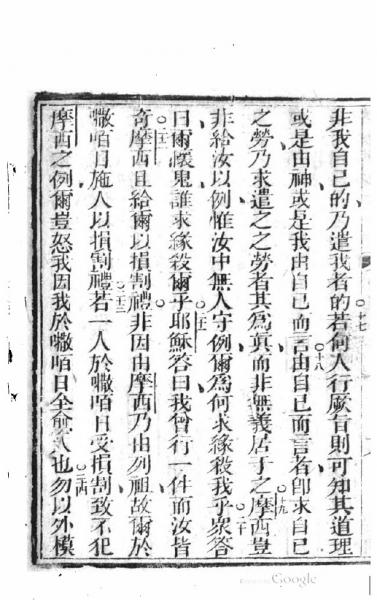 非我自己的乃遣我者的若何人行厥旨則可知其道理
十七
或是由神或是我由自己而言由自己而言者卽求自己
十八
之勞乃求遣之之勞者其為真而非無義居于之摩西豈
十九
非給汝以例惟汝中無人守例爾為何求緣殺我乎衆答
二十
曰爾懷鬼誰求緣殺爾乎耶穌答曰我曾行一件而汝皆
二一
奇摩西且給爾以損割禮非因由摩西乃由列祖故爾於
二二
㘔咟日施人以損割禮若一人於㘔咟日受損割致不犯
二三
摩西之例爾豈怒我因我於㘔咟日全愈人也勿以外模
二四
Google